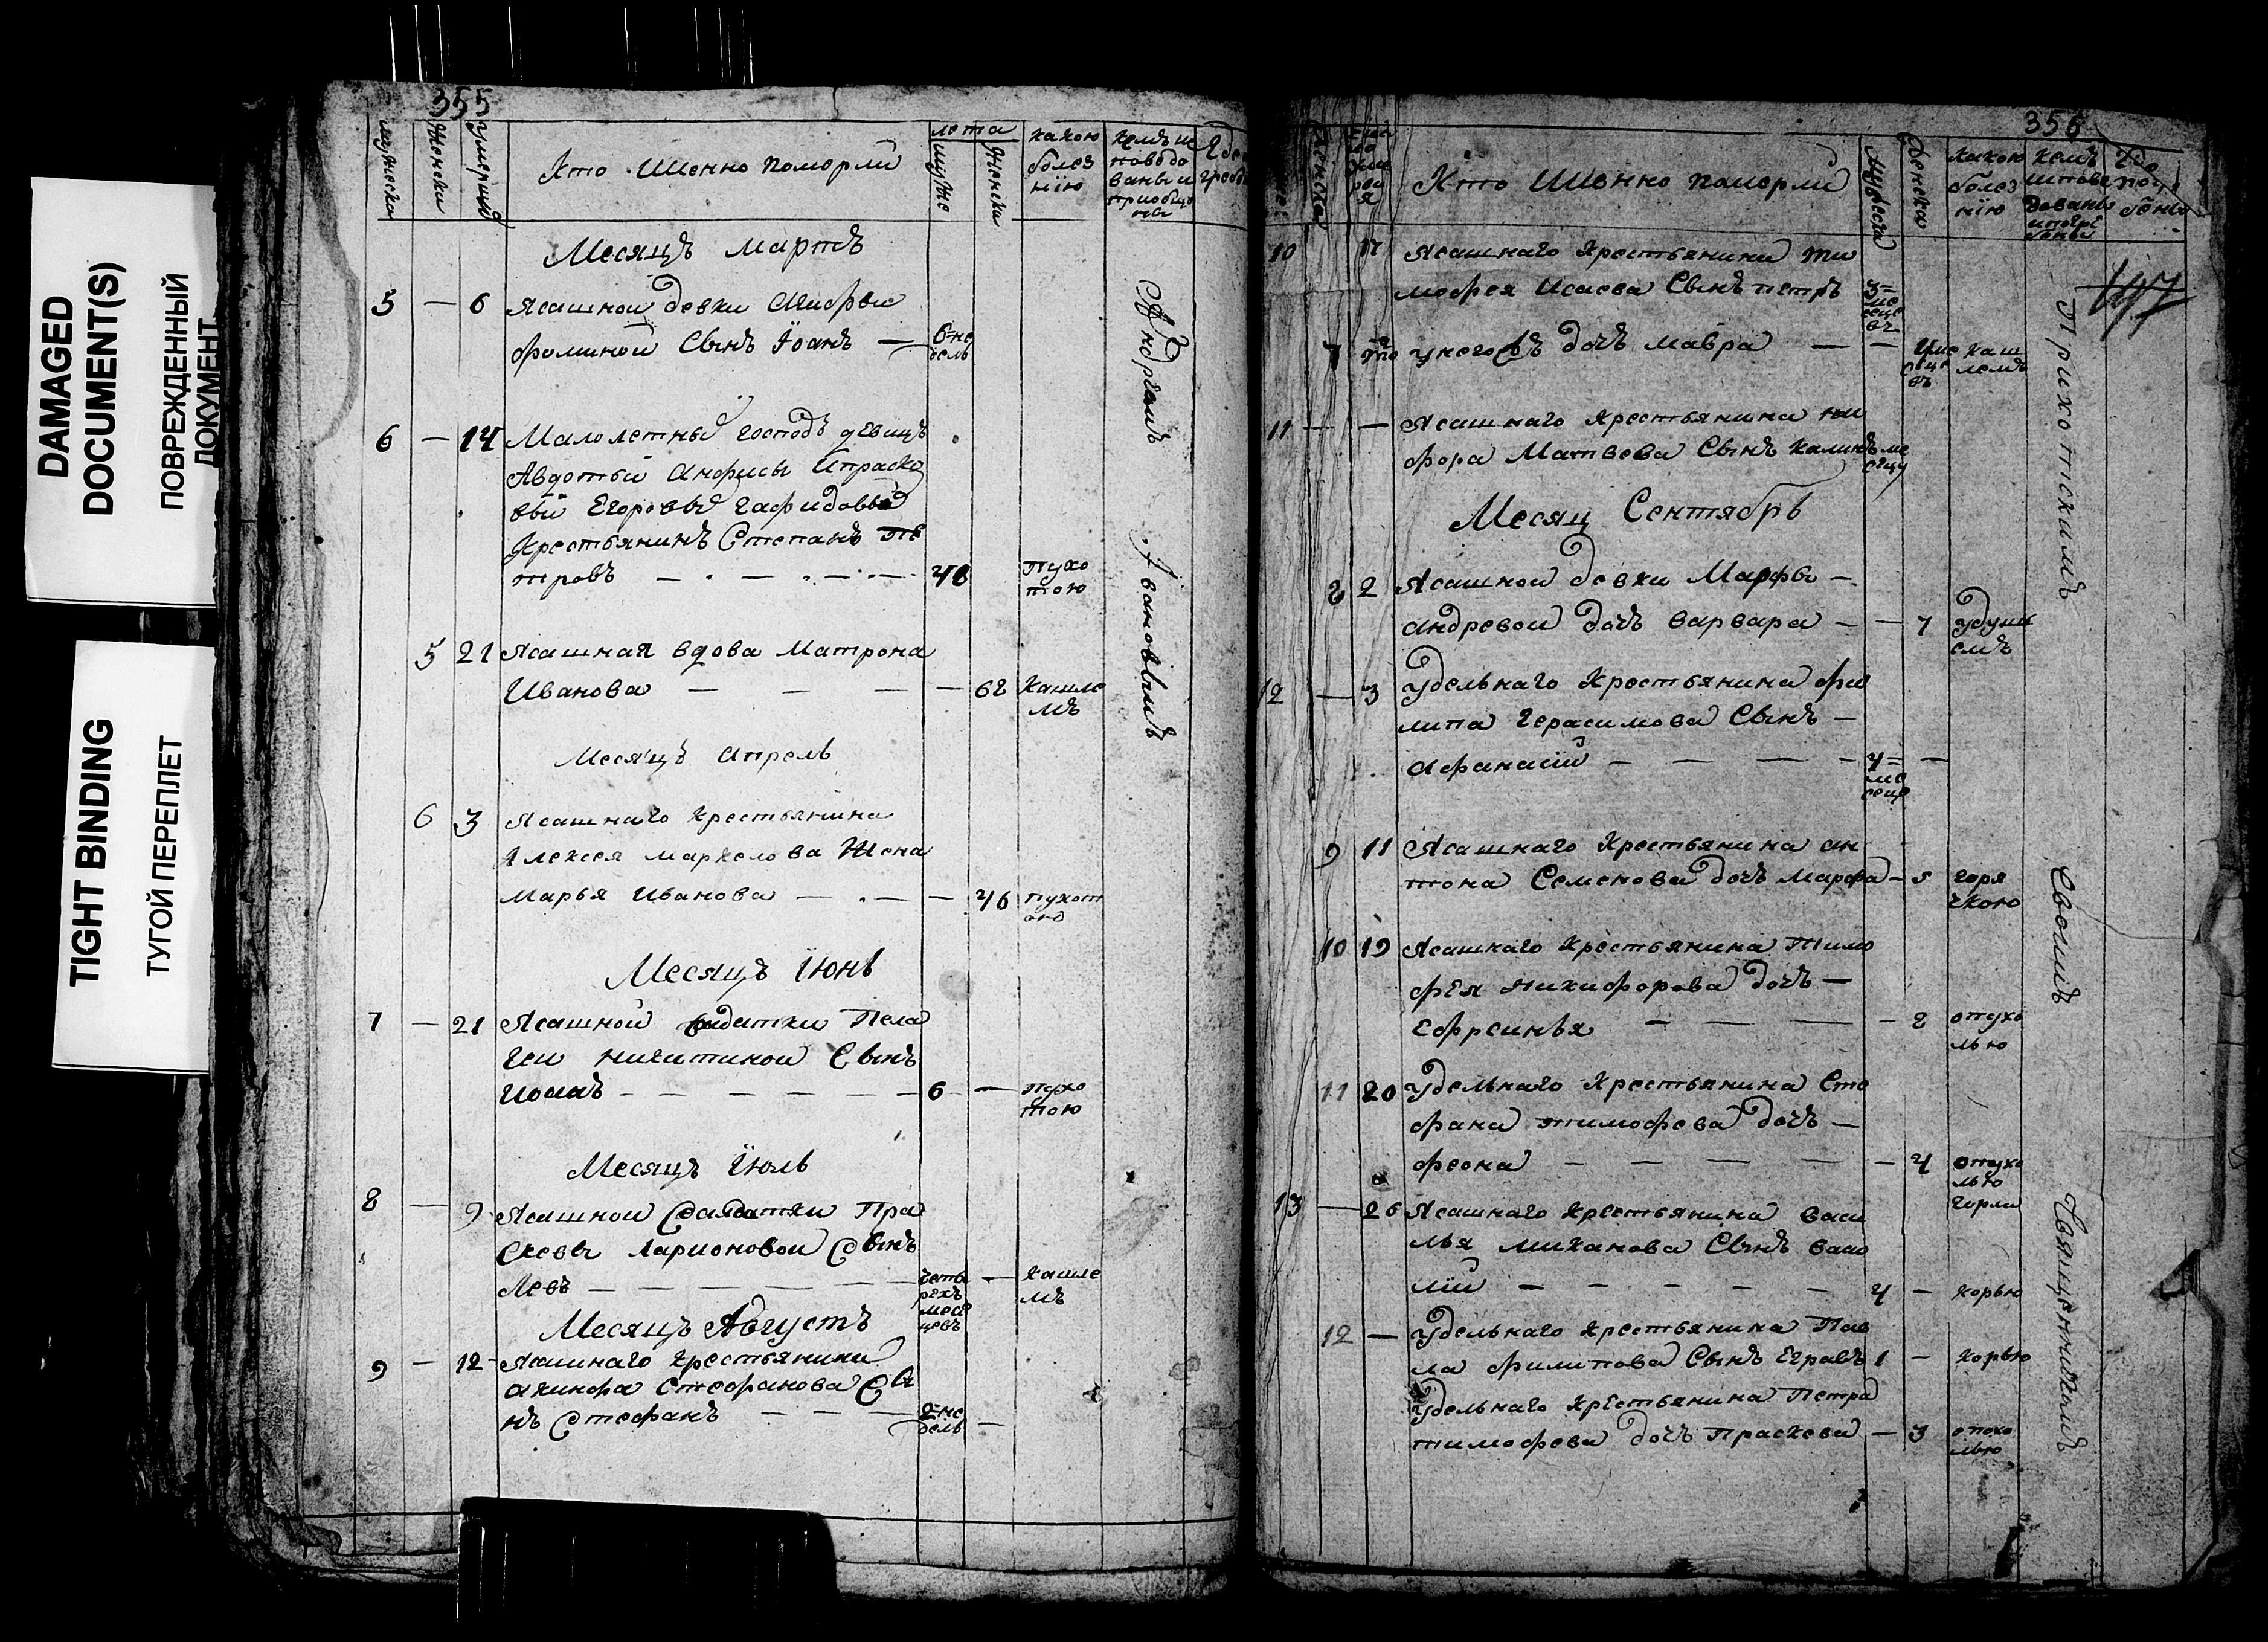 DAMAGED
DOCUMENT(S)
ПОВРЕЖДЕННЫЙ
ДОКУМЕНТ
TIGHT BINDING
ТУГОЙ ПЕРЕПЛЕТ
355
мужеска
Женска
умерший
Кто Имянно померли
лета
мужие
женска
какою
болез
нїю
Кемъ и
поведо
ваны и
приобще
ны
Где
Месяцъ Мартъ
5 — 6 Ясашной девки
фоминой Сынъ Їоанъ — 6=не
дель
6 — 14 Малолетныѣ господъ девицъ
Авдотьи Анфисы Ипраско
вьи Егоровыѣ
Крестьянинъ Степанъ Пе
тровъ — — — 48 пухо
тою
5 21 Ясашная вдова Матрона
Иванова — — — — 62 Кашле
мъ
Месяцъ Апрель
6 3 Ясашнаго Крестьянина
Алексея маркелова Жена
Марья Иванова — — — 46 пухот
ою
Месяцъ Їюнь
7 — 21 Ясашной салдатки Пела
геи никитиной Сынъ
Иоанъ — — — — — 6 — пухо
тою
Месяцъ Їюль
8 — 9 Ясашной Салдатки Пра
сковьи Ларионовой Сынъ
Левъ — — — — четы
рехъ
меся
цевъ — кашле
мъ
Месяцъ Августъ
9 — 12 Ясашнаго Крестьянина
акинфа Стефанова Сы
нъ Стефанъ — — — 2=не
дель —
Андреемъ Ивановымъ
356
Женска
Кто Имянно померли
мужеска
Женска
какою
болез
нїю
Кемъ
испове
дованы
и погре
бены
Где
погре
бены
197
10 17 Ясашнаго Крестьянина ти
мофея Исаева Сынъ петръ 3=
ме
сеце
въ
7 то унегожъ дочь мавра — — каш
лемъ
11 — — Ясашнаго Крестьянина ни
фора Матвеева Сынъ Калинъ ме
сецу
Месяц Сентябрь
8 2 Ясашной девки Марфы —
андревой дочь варвара — — 7 удуш
емъ
12 — 3 Удельнаго Крестьянина фи
липа Герасимова Сынъ —
Афанасїй — — — — 4=
ме
сеце —
9 11 Ясашнаго Крестьянина ан
тона Семенова дочь Марфа — 5 горя
чкою
10 19 Ясашнаго Крестьянина Тимо
фея Никифорова дочь —
Ефросинья — — — — 2 опухо
лью
11 20 Удельнаго Крестьянина Сте
фана тимофеева дочь —
феона — — — — — 4 опухо
лью
горла
13 — 26 Ясашнаго Крестьянина Васи
лья Сынъ васи
лїй — — — — 4 — корью
12 — Удельнаго Крестьянина Пав
ла филипова Сынъ 1 — корью
Удельнаго Крестьянина Петра
тимофеева дочь Праскева — 3 опохо
лью
Приходскимъ Своимъ Священникомъ